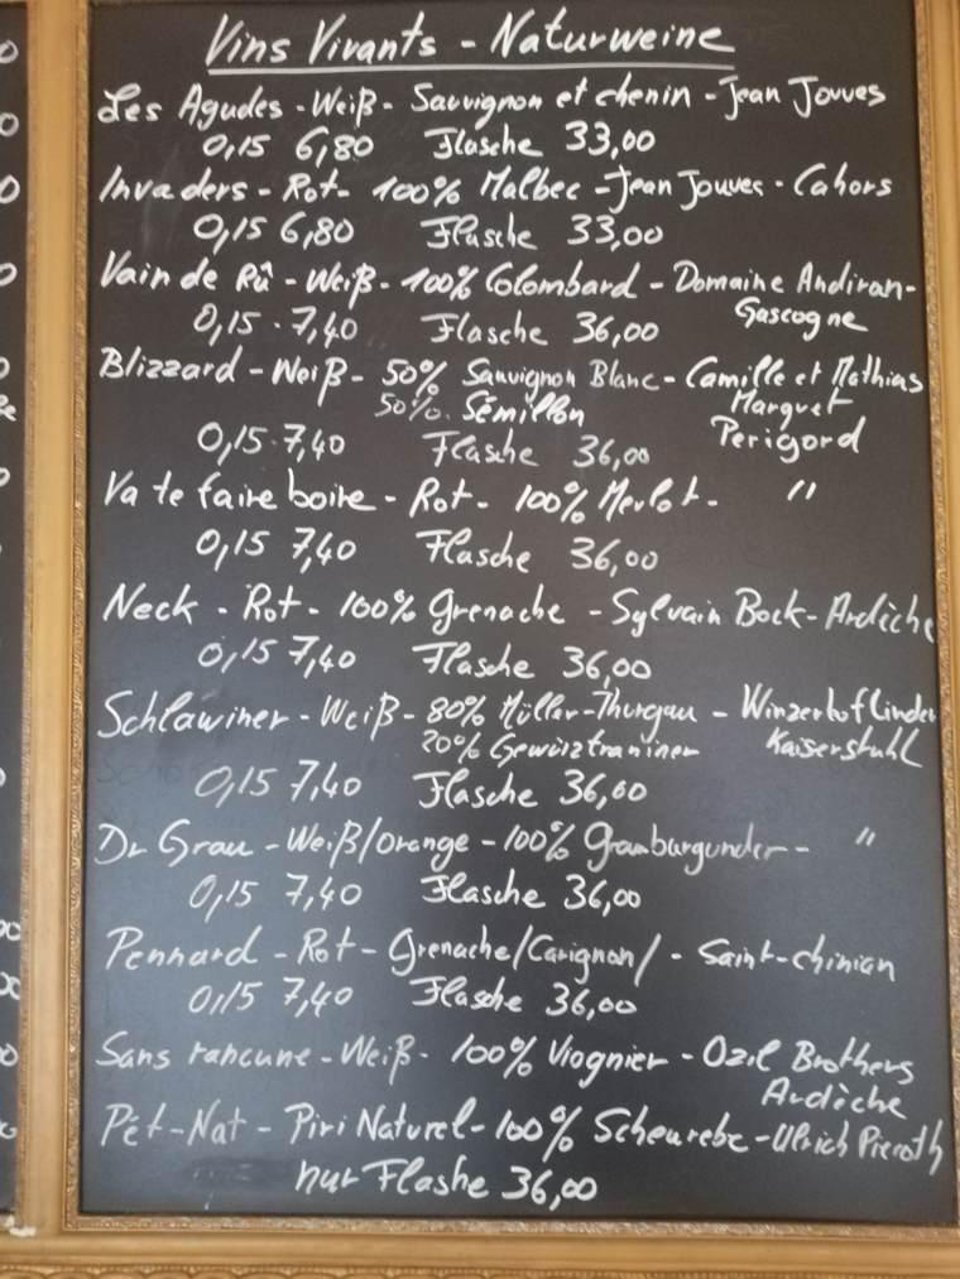 Vins Vivants - Naturweine
Les Agudes - Weiß - Sauvignon et chenin - Jean Jouves
0,15 6,80 Flasche 33,00
Invaders - Rot - 100% Malbec - Jean Jouves - Cahors
0,15 6,80 Flasche 33,00
Vain de Rû - Weiß - 100% Colombard - Domaine Andiran -
Gascogne
0,15 - 7,40 Flasche 36,00
Blizzard - Weiß - 50% Sauvignon Blanc - Camille et Mathias
50% Sémillon Marquet
Perigord
0,15 - 7,40 Flasche 36,00
Va te faire boire - Rot - 100% Merlot - "
0,15 7,40 Flasche 36,00
Neck - Rot - 100% Grenache - Sylvain Bock - Ardèche
0,15 7,40 Flasche 36,00
Schlawiner - Weiß - 80% Müller-Thurgau - Winzerhof Linder
20% Gewürztraminer Kaiserstuhl
0,15 7,40 Flasche 36,00
Dr Grau - Weiß/Orange - 100% Grauburgunder - "
0,15 7,40 Flasche 36,00
Pennard - Rot - Grenache/Carignan/ - Saint-chinian
0,15 7,40 Flasche 36,00
Sans rancune - Weiß - 100% Viognier - Ozil Brothers
Ardèche
Pét-Nat - Piri Naturel - 100% Scheurebe - Ulrich Pieroth
nur Flashe 36,00